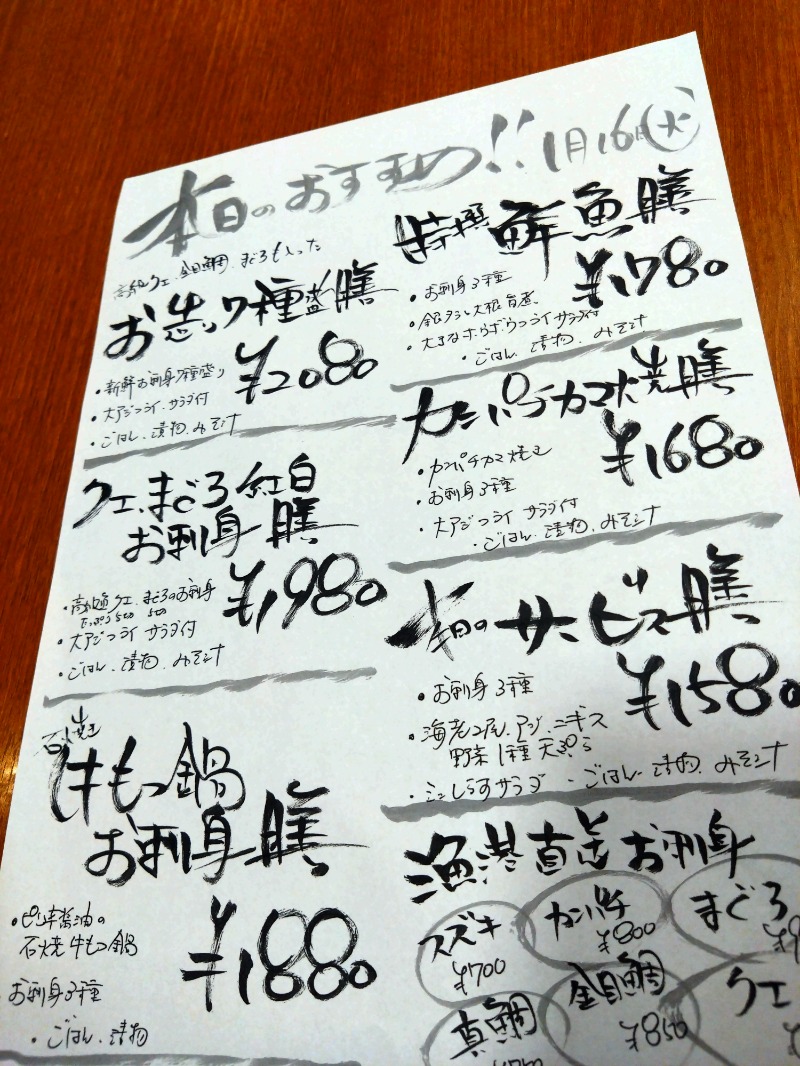 本日のおすすめ!! 1月16日(火)
高級クエ、金目鯛、まぐろも入った
お造り7種盛膳
¥2080
・新鮮お刺身7種盛り
・大アジフライ サラダ付
・ごはん、漬物、みそ汁
クエ、まぐろ紅白
お刺身膳
¥1980
・高級魚クエ、まぐろのお刺身
・大アジフライ サラダ付
・ごはん、漬物、みそ汁
石焼
牛もつ鍋
お刺身膳
¥1880
・ピリ辛醤油の
石焼牛もつ鍋
お刺身3種
・ごはん、漬物
特撰 鮮魚膳
¥1780
・お刺身3種
・銀ダラと大根旨煮
・大きなホウボウフライ サラダ付
・ごはん、漬物、みそ汁
カンパチカマ焼膳
¥1680
・カンパチカマ焼き
・お刺身3種
・大アジフライ サラダ付
・ごはん、漬物、みそ汁
本日のサービス膳
¥1580
・お刺身3種
・海老2尾、アジ、ニギス
野菜1種天ぷら
・ミニしらすサラダ ・ごはん、漬物、みそ汁
漁港直送お刺身
スズキ
¥700
カンパチ
¥800
まぐろ
真鯛
金目鯛
¥850
クエ